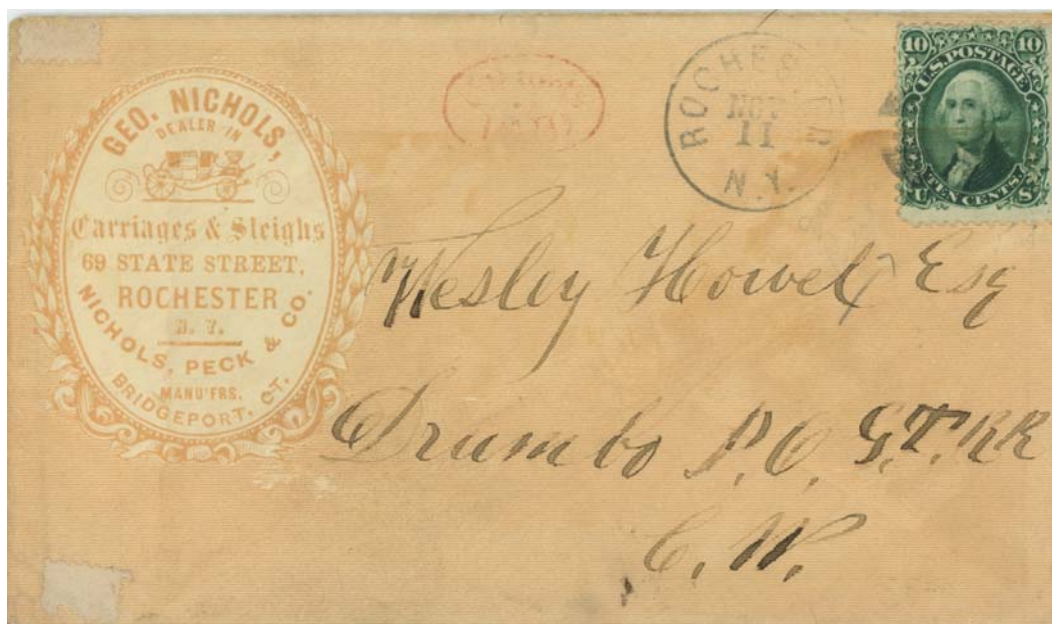 GEO. NICHOLS,
DEALER IN
Carriages & Sleighs
69 STATE STREET,
ROCHESTER
N. Y.
NICHOLS, PECK & CO.
MANU'FRS.
BRIDGEPORT, CT.
ROCHESTER
NOV
11
N.Y.
10 10
U.S. POSTAGE
U S
TEN CENTS.
Wesley Howel Esq
Drumbo P.O. G.T.RR
C.W.